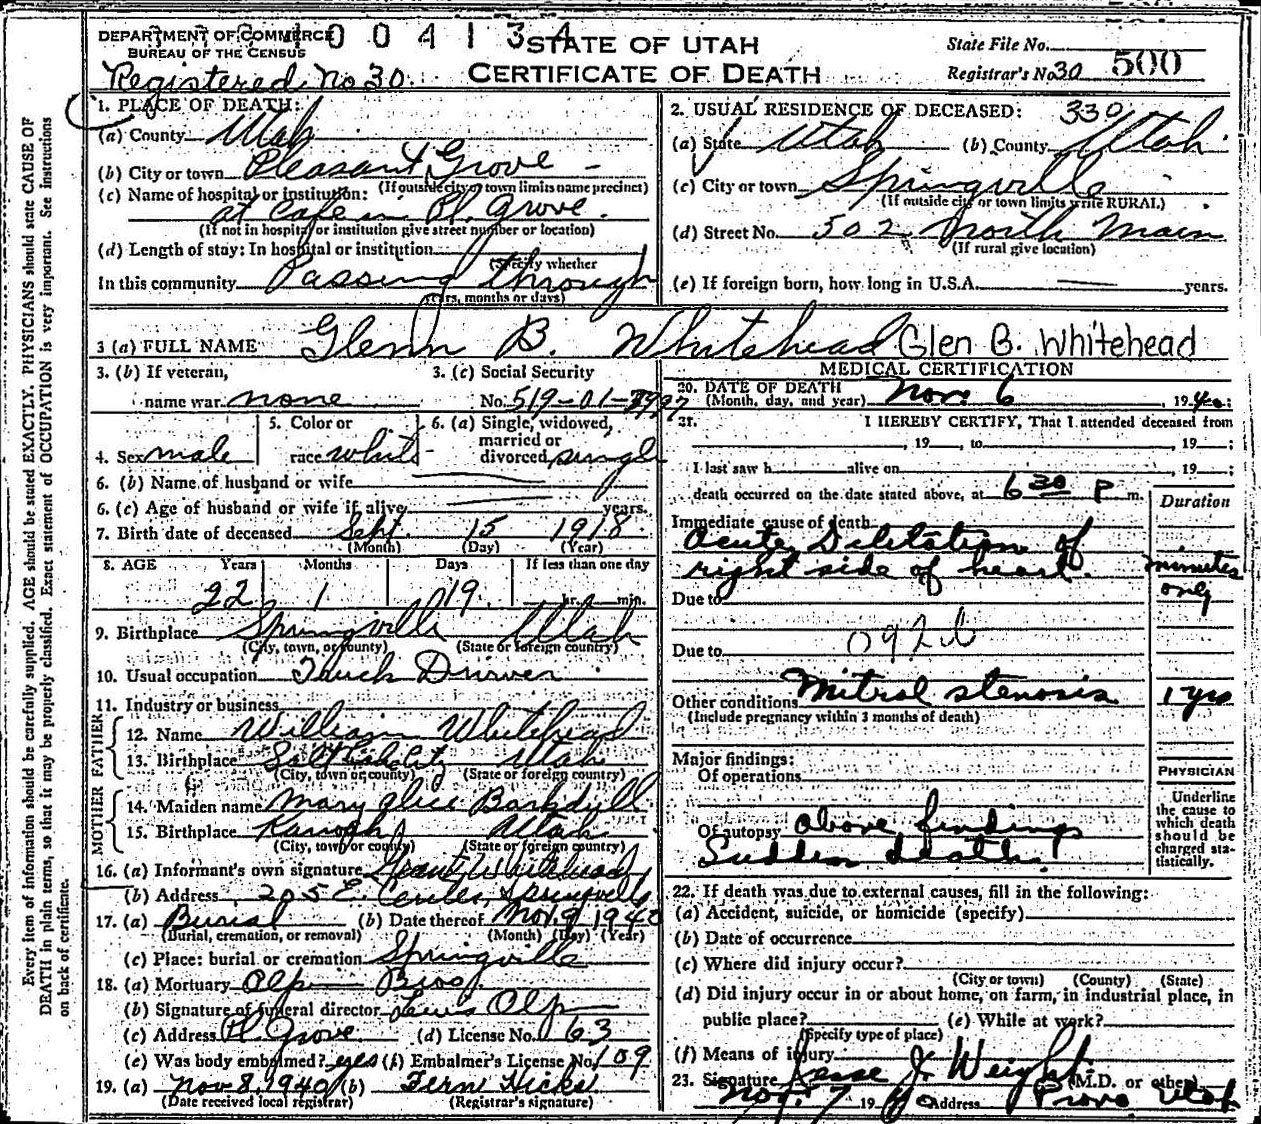 DEPARTMENT OF COMMERCE
BUREAU OF THE CENSUS
1004134
STATE OF UTAH
CERTIFICATE OF DEATH
State File No.
Registrar's No. 30 500
Registered No 30.
1. PLACE OF DEATH:
(a) County Utah
(b) City or town Pleasant Grove
(If outside city or town limits name precinct)
(c) Name of hospital or institution:
at Cafe in Pl. Grove.
(If not in hospital or institution give street number or location)
(d) Length of stay: In hospital or institution
(Specify whether
In this community Passing through
years, months or days)
2. USUAL RESIDENCE OF DECEASED: 330
(a) State Utah (b) County Utah
(c) City or town Springville
(If outside city or town limits write RURAL)
(d) Street No. 502 North Main
(If rural give location)
(e) If foreign born, how long in U.S.A. years.
3 (a) FULL NAME Glenn B. Whitehead Glen B. Whitehead
3. (b) If veteran,
name war none
3. (c) Social Security
No. 519-01-
4. Sex male
5. Color or
race white
6. (a) Single, widowed,
married or
divorced single
6. (b) Name of husband or wife
6. (c) Age of husband or wife if alive years.
7. Birth date of deceased Sept. 15 1918
(Month) (Day) (Year)
8. AGE Years Months Days If less than one day
22 1 19 hr. min.
9. Birthplace Springville Utah
(City, town, or county) (State or foreign country)
10. Usual occupation Truck Driver
11. Industry or business
FATHER
12. Name William Whitehead
13. Birthplace Salt Lake City Utah
(City, town or county) (State or foreign country)
MOTHER
14. Maiden name Mary Alice Barkdull
15. Birthplace Kanosh Utah
(City, town or county) (State or foreign country)
16. (a) Informant's own signature Grant Whitehead
(b) Address 205 E. Center, Springville
17. (a) Burial (b) Date thereof Nov. 9 1940
(Burial, cremation, or removal) (Month) (Day) (Year)
(c) Place: burial or cremation Springville
18. (a) Mortuary Olp Bros.
(b) Signature of funeral director Lewis Olp
(c) Address Pl. Grove (d) License No. 63
(e) Was body embalmed? yes (f) Embalmer's License No. 109
19. (a) Nov 8, 1940 (b) Fern Hicks
(Date received local registrar) (Registrar's signature)
MEDICAL CERTIFICATION
20. DATE OF DEATH
(Month, day, and year) Nov. 6, 1940;
21. I HEREBY CERTIFY, That I attended deceased from
, 19 , to , 19 ;
I last saw h alive on , 19 ;
death occurred on the date stated above, at 6 30 P m.
Duration
Immediate cause of death
Acute Diletation of
right side of heart. minutes
only
Due to
092b
Due to
Other conditions Mitral stenosis 1 yrs
(Include pregnancy within 3 months of death)
Major findings:
Of operations
Of autopsy above findings
Sudden death.
PHYSICIAN
Underline
the cause to
which death
should be
charged sta-
tistically.
22. If death was due to external causes, fill in the following:
(a) Accident, suicide, or homicide (specify)
(b) Date of occurrence
(c) Where did injury occur?
(City or town) (County) (State)
(d) Did injury occur in or about home, on farm, in industrial place, in
public place? (e) While at work?
(Specify type of place)
(f) Means of injury
23. Signature Jesse J. Weight (M.D. or other)
Nov. 7 1940 Address Provo Utah
Every item of information should be carefully supplied. AGE should be stated EXACTLY. PHYSICIANS should state CAUSE OF
DEATH in plain terms, so that it may be properly classified. Exact statement of OCCUPATION is very important. See instructions
on back of certificate.